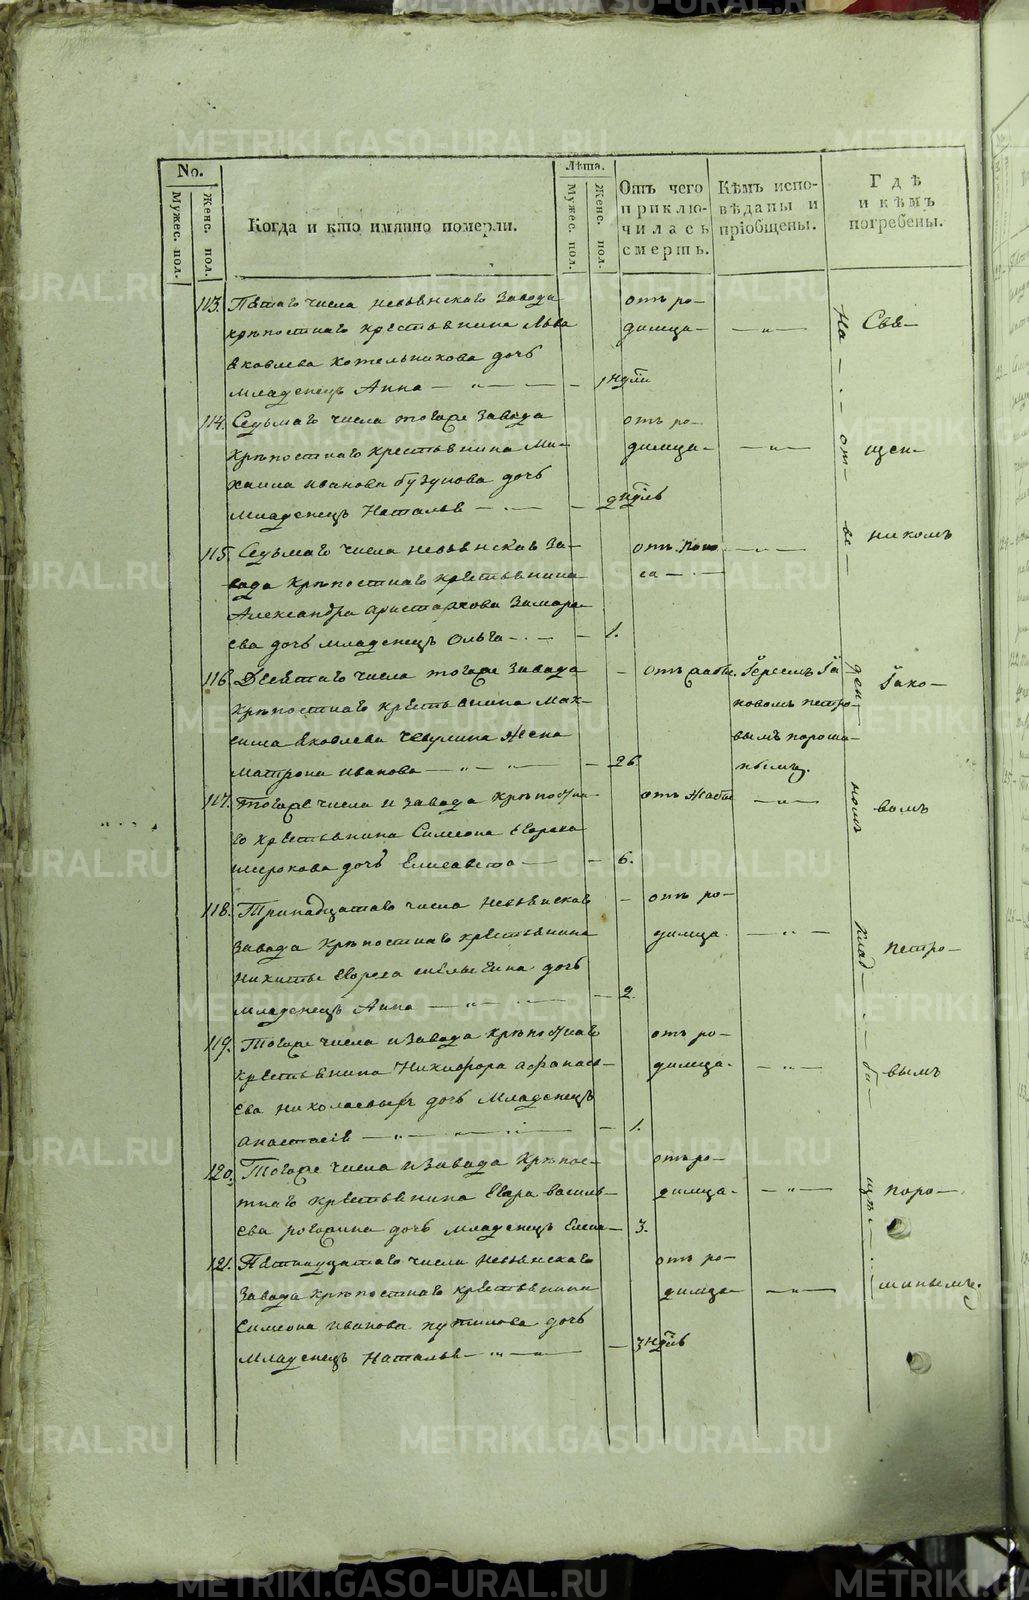 No.
Мужес. пол.
Женс. пол.
Когда и кто имянно померли.
Лѣта.
Мужес. пол.
Женс. пол.
Отъ чего приклю-
чилась
смерть.
Кѣмъ испо-
вѣданы и
прiобщены.
Гдѣ
и кѣмъ
погребены.
113. Пятаго числа невьянскаго завода
крѣпостнаго крестьянина Льва
Яковлева Котельникова дочь
младенецъ Анна
1 ндли
отъ ро-
димца
114. Седьмаго числа тогоже завода
крѣпостнаго крестьянина Ми-
хаила Иванова бузунова дочь
младенецъ Наталья
2 ндль
отъ ро-
димца
115. Седьмаго числа невьянскаго за-
вода крѣпостнаго крестьянина
Александра Аристархова
дочь младенецъ Ольга
1.
отъ поно
са
116. Десятаго числа тогоже завода
крѣпостнаго крестьянина Мак-
сима Яковлева жена
Матрона Иванова
26.
отъ слабы.
Iереемъ Iа
ковомъ петро-
вымъ пороши-
нымъ.
117. Тогоже числа и завода крѣпостна-
го крестьянина Симеона
широкова дочь Елисавета
6.
отъ жабы
118. Тринадцатаго числа невьянскаго
завода крѣпостнаго крестьянина
Никиты дочь
младенецъ Анна
2.
отъ ро-
димца
119. Тогоже числа и завода крѣпостнаго
крестьянина Никифора Афанась-
ева дочь младенецъ
Анастасiя
1.
отъ ро-
димца
120. Тогоже числа и завода крѣпос-
тнаго крестьянина василь-
ева дочь младенецъ Елена
3.
отъ ро-
димца
121. Пятнадцатаго числа невьянскаго
завода крѣпостнаго крестьянина
Симеона Иванова путилова дочь
младенецъ Наталья
3 ндль
отъ ро-
димца
На от-
ве
ден
номъ
клад
би-
щѣ
Свя-
щен-
никомъ
Iако-
вомъ
петро-
вымъ
поро-
шинымъ.
METRIKI.GASO-URAL.RU